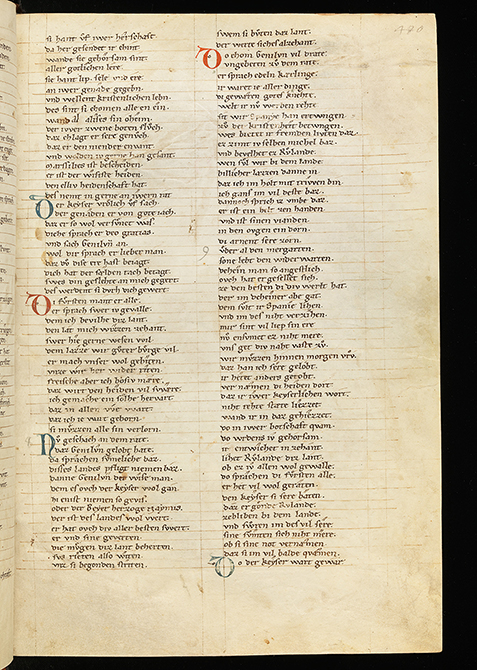 si hant vf iwer herschaft
da her gesendet ir chint
wande sie gehorsam sint
aller gotlichen lere
sie hant lip sele und ere
an iwer genade gegebn
und wellent kristenlichen lebn
des sint si chomen alle en ein
wan al alises sin oheim
der iwer zwene boten sluch
daz chlagt er sere genuch
daz er den niender envant
und wolden iv gerne han gesant
marssilies ist bescheiden
er ist der wiseste heiden
den elliv heidenschaft hat
des nemt in gerne an iwern rat
Der keyser vrolich vf sach
der genaden er von gote iach
daz er so wol versunet was
diche sprach er deo gratias
und sach Genilvn an
wol dir sprach er lieber man
daz dv dise er hast beiagt
dich hat der selden rach betagt
swes din geslehte an mich gegert
des werdent si durch dich gewert
Di fursten mant er alle
er sprach swer iv gevalle
dem ich bevilhe diz lant
den lat mich wizzen zehant
swer hie gerne wesen wil
dem lazze wir guter burge vil
er mach unser wol gebiten
virze wir her wider riten
freische aber ich bosiv mære
daz wirt den heiden vil swære
ich gemache ein solhe hervart
daz in allen
daz ich ie wart geborn
si muzzen alle sin verlorn
Nv geschach an dem rate
daz Genilvn gelobt hate
da sprachen sumeliche daz
disses landes pfligt niemen baz
danne Genilvn der wise man
dem es ouch der keyser wol gan
di enist niemen so gewis
oder der Beyer herzoge naymis
der ist des landes wol wert
er hat ouch div aller besten swert
er und sine geverten
die mugen diz lant beherten
sus rieten also witen
unz si begonden striten
swem si buten daz lant
der werte sichs alzehant
Do chom Genilvn vil drate
ungebeten zv dem rate
er sprach edeln kærlinge
ir waret ie aller dinge
di gewæren gotes knehte
welt ir nv werden rehte
sit wir Spanie han erwngen
zv der kristenheit betwngen
wes bitet ir fremden livten daz
er zimt iv selben michel baz
und bevelhet ez Rvlande
wen sul wir bi dem lande
billicher lazzen danne in
daz ich im holt mit triwen bin
ich gans im vil deste baz
dannoch sprach er umbe daz
er ist ein helt zen handen
und ist sinen vianden
in den ougen ein dorn
di arnent sere zorn
vber al den niergarten
sone lebt den under warten
dehein man so angestlich
ouch hat er gesellet sich
ze den besten di div werlt hat
der im deheiner abe gat
dem sult ir Spanie lihen
und im des niht verzihen
mir sint vil liep sin ere
nv ensumet ez niht mere
uns get div naht vaste zv
wir muzzen hinnen morgen vrv
daz han ich sere gelobt
ir hetet anders getobt
vernamen di heiden dort
daz ir iwer keyserlichen wort
niht rehte state liezzet
wand ir in daz gehiezzet
do in iwer botschaft quam
do wrdens iv gehorsam
ir entwichet in zehant
lihet Rvlande diz lant
ob ez iv allen wol gevalle
do sprachen di fursten alle
er het vil wol geraten
den keyser si sere baten
daz er gonde Rvlande
zebliben bi dem lande
und swuren im des vil sere
sine sumten sich niht mere
ob si sine not vernamen
daz si im vil balde quemen
Do der keyser wart gewar